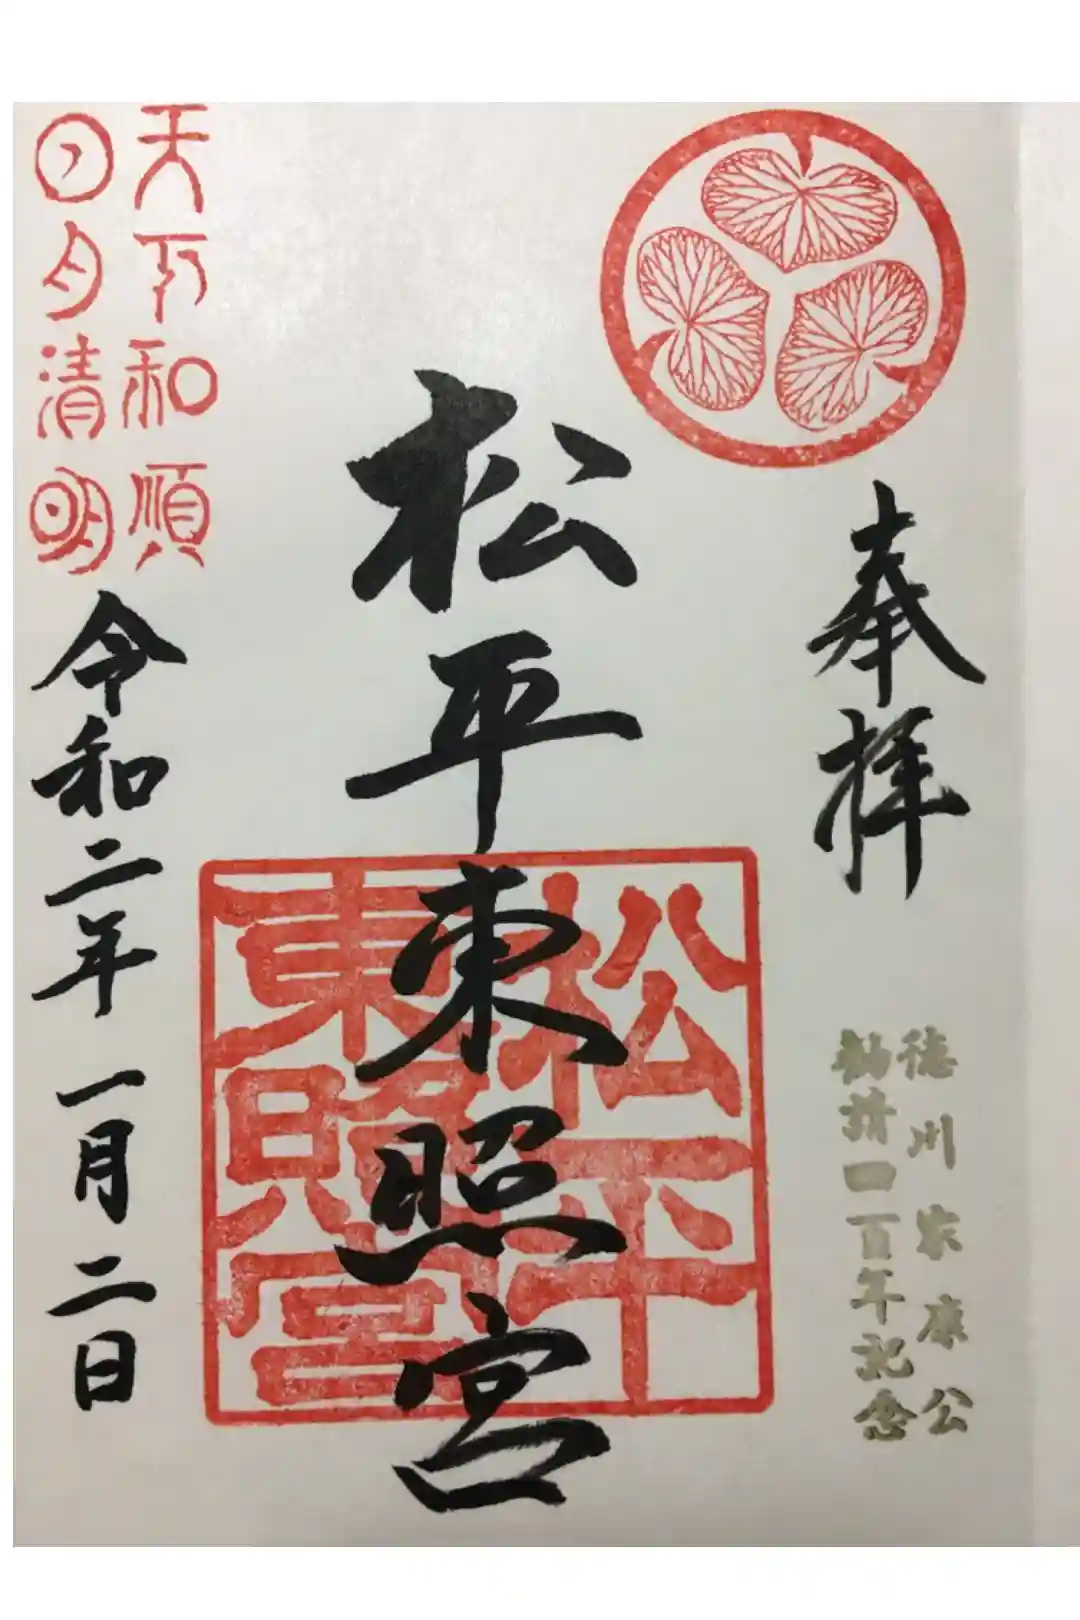 奉拝
徳川家康公
勧請四百年記念
松平東照宮
松平
東照宮
天下和順
日月清明
令和二年一月二日